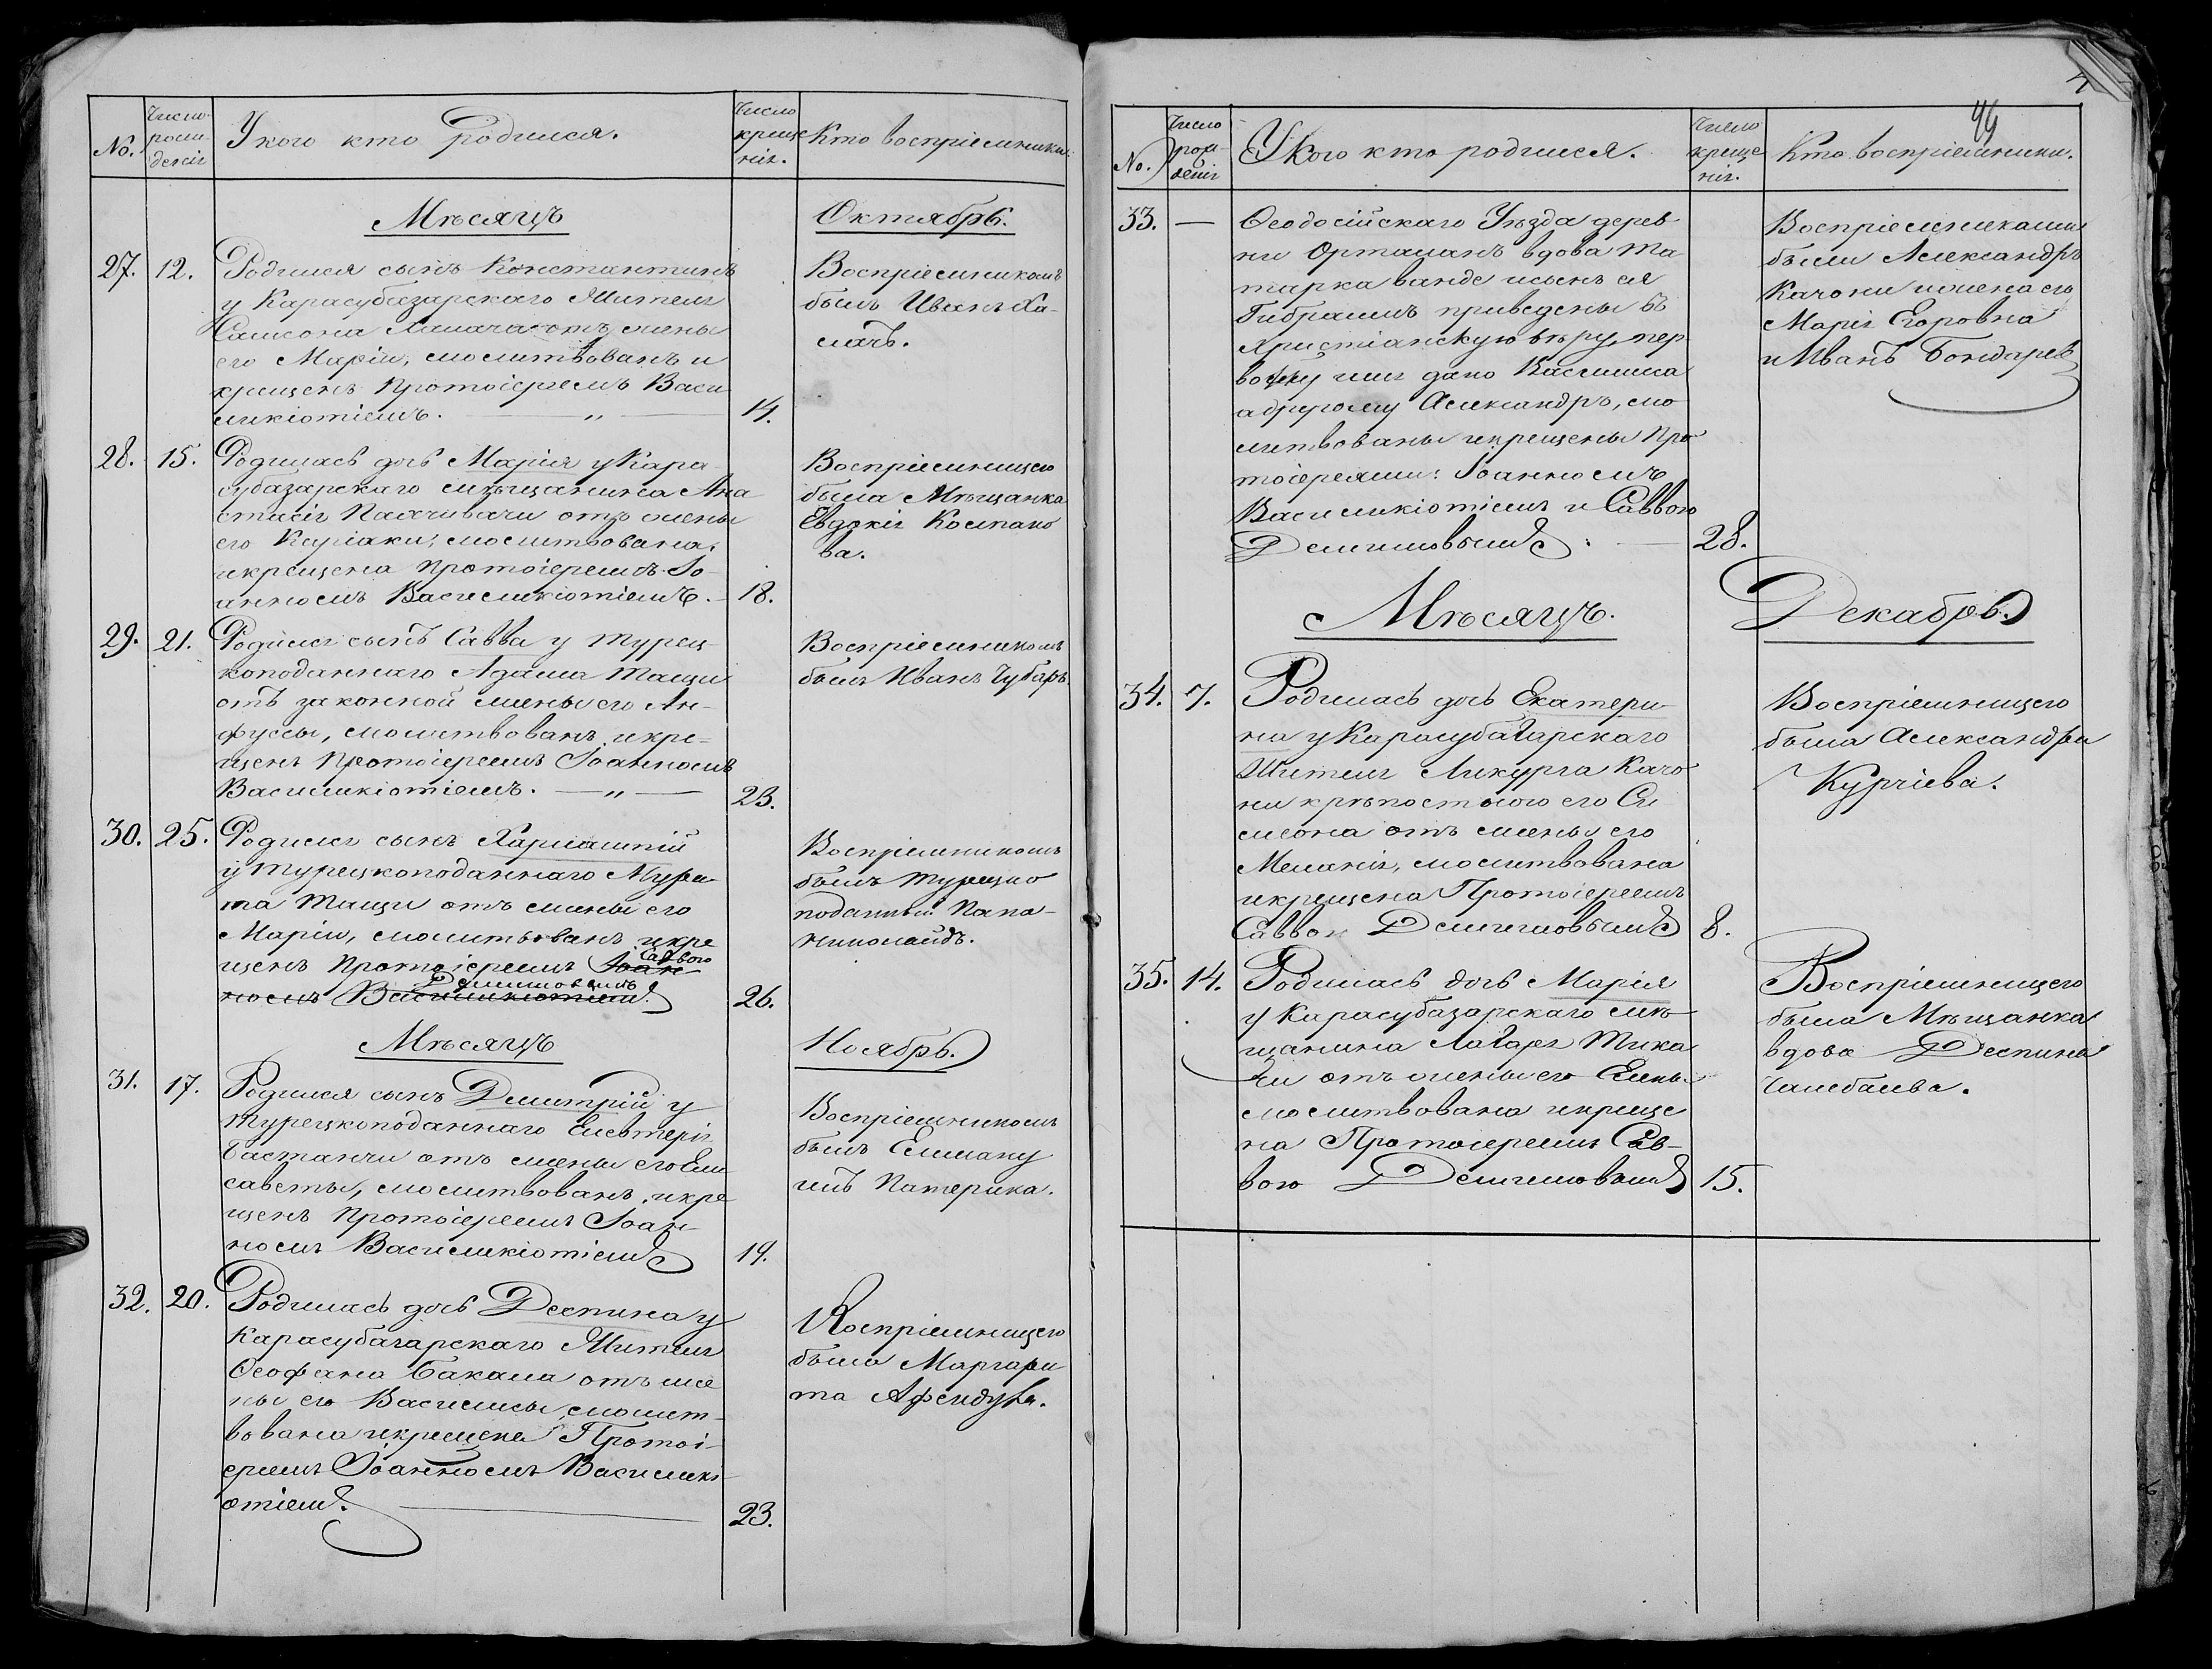 No.
Число рожденія
У кого кто родился.
Число крещенія.
Кто воспріемники.
Мѣсяцъ
Октябрь.
27. 12.
Родился сынъ Константинъ
у Карасубазарскаго Жителя
Самсона отъ жены
его Маріи, молитвованъ и
крещенъ Протоіереемъ Васи
ликіотіемъ. — „ — 14.
Воспріемникомъ
былъ Иванъ Ха-
лачъ.
28. 15.
Родилась дочь Марія у Кара-
субазарскаго мѣщанина Ана
стасія отъ жены
его Киріаки, молитвована
и крещена Протоіереемъ Іо-
анномъ Василикіотіемъ. 18.
Воспріемницею
была Мѣщанка
Евдокія Колпако
ва.
29. 21.
Родился сынъ Савва у Турец-
коподаннаго Адама Тащи
отъ законной жены его Ан-
фуссы, молитвованъ и кре-
щенъ Протоіереемъ Іоанномъ
Василикіотіемъ. — „ — 23.
Воспріемникомъ
былъ Иванъ Чубаръ.
30. 25.
Родился сынъ Харлампій
у Турецкоподаннаго Мура
та Тащи отъ жены его
Маріи, молитвованъ и кре
щенъ Протоіереемъ Іоан Саввою
номъ Василикіотіемъ Демишовымъ 26.
Воспріемникомъ
былъ Турецко
поданный Папа-
николаидъ.
Мѣсяцъ
Ноябрь.
31. 17.
Родился сынъ Димитрій у
Турецкоподаннаго Елевтерія
Бастанчи отъ жены его Ели
саветы, молитвованъ и кре
щенъ Протоіереемъ Іоан-
номъ Василикіотіемъ 19.
Воспріемникомъ
былъ Емману
илъ Патерика.
32. 20.
Родилась дочь Деспина у
Карасубазарскаго Жителя
Ѳеофана Бакала отъ же
ны его Василисы, молит-
вована и крещена Протоі-
ереемъ Іоанномъ Василикі-
отіемъ. 23.
Воспріемницею
была Маргари
та Афендула.
49
No.
Число рожденія
У кого кто родился.
Число крещенія.
Кто воспріемники.
33. —
Ѳеодосійскаго Уѣзда дерев
ни Орталанъ вдова Та
тарка ванде и сынъ ея
Гибраимъ приведены въ
Христіанскую вѣру, пер
вой имя дано Василиса
а другому Александръ, мо
литвованы и крещены Про
тоіереями: Іоанномъ
Василикіотіемъ и Саввою
Демишовымъ. — 28.
Воспріемниками
были Александръ
Качони и жена его
Марія Егоровна
и Иванъ Бондарев
Мѣсяцъ.
Декабрь.
34. 7.
Родилась дочь Екатери-
на у Карасубазарскаго
Жителя Ликурга Качо
ни крѣпостного его Си
меона отъ жены его
Меланіи, молитвована
и крещена Протоіереемъ
Саввою Демишовымъ 8.
Воспріемницею
была Александра
Курчіева.
35. 14.
Родилась дочь Марія
у Карасубазарскаго мѣ
щанина Лазаря Тика
чи отъ жены его Елены
молитвована и креще
на Протоіереемъ Сав-
вою Демишовымъ 15.
Воспріемницею
была Мѣщанка
вдова Деспина
Чалбаева.